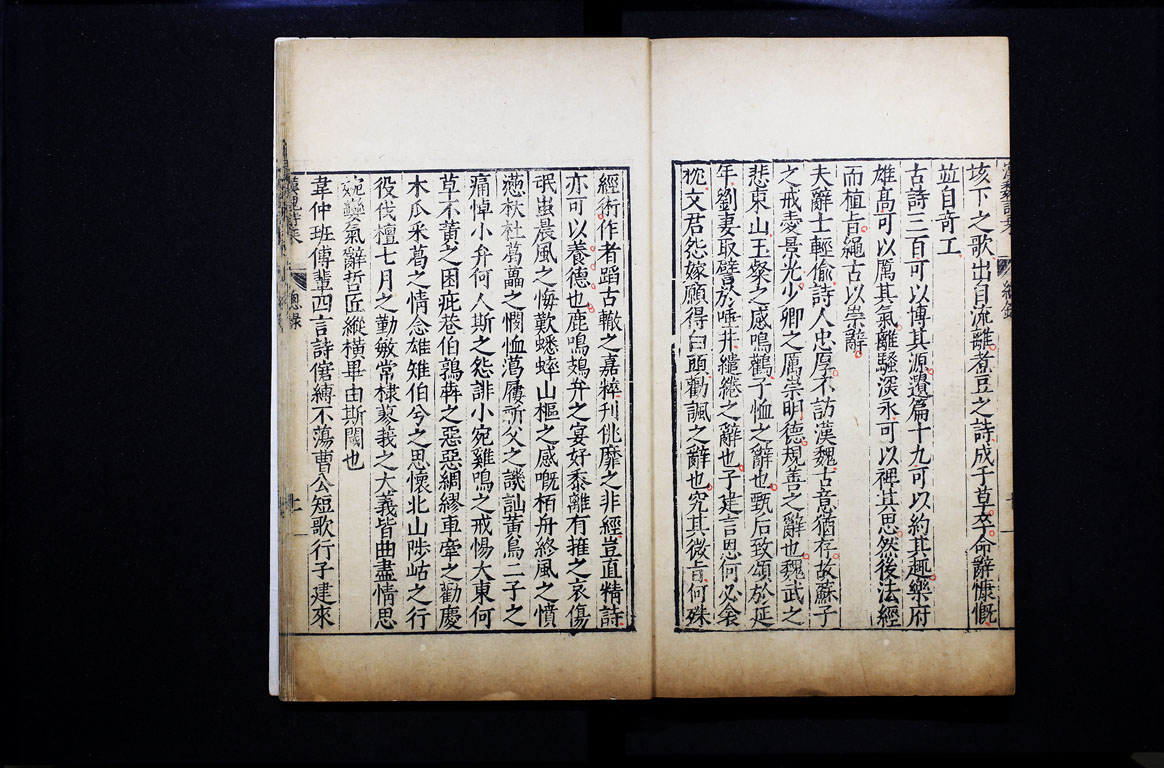 垓下之歌出自流離煮豆之詩成于草卒命辭慷慨
並自奇工
古詩三百可以博其源遺篇十九可以約其趣樂府
雄高可以厲其氣離騷深永可以裨其思然後法經
而植旨繩古以崇辭
夫辭士輕偷詩人忠厚不訪漢魏古意猶存故蘇子
之戒愛景光少卿之厲崇明德規善之辭也魏武之
悲東山王粲之感鳴鸛子恤之辭也甄后致頌於延
年劉妻取譬於唾井繾綣之辭也子建言恩何必衾
枕文君怨嫁願得白頭勸諷之辭也究其微旨何殊
經術作者蹈古轍之嘉粹刊佻靡之非經豈直精詩
亦可以養德也鹿鳴頍弁之宴好黍離有蓷之哀傷
氓蚩晨風之悔歎蟋蟀山樞之感嘅栢舟終風之憤
懣杕杜葛藟之憫恤葛屨祈父之譏訕黃鳥二子之
痛悼小弁何人斯之怨誹小宛雞鳴之戒惕大東何
草不黃之困疵巷伯鶉奔之惡惡綢繆車舝之勸慶
木瓜采葛之情念雄雉伯兮之思懷北山陟岵之行
役伐檀七月之勤敏常棣蓼莪之大義皆曲盡情思
婉孌氣辭哲匠縱橫畢由斯閾也
韋仲班傅輩四言詩儓縛不蕩曹公短歌行子建來
總錄